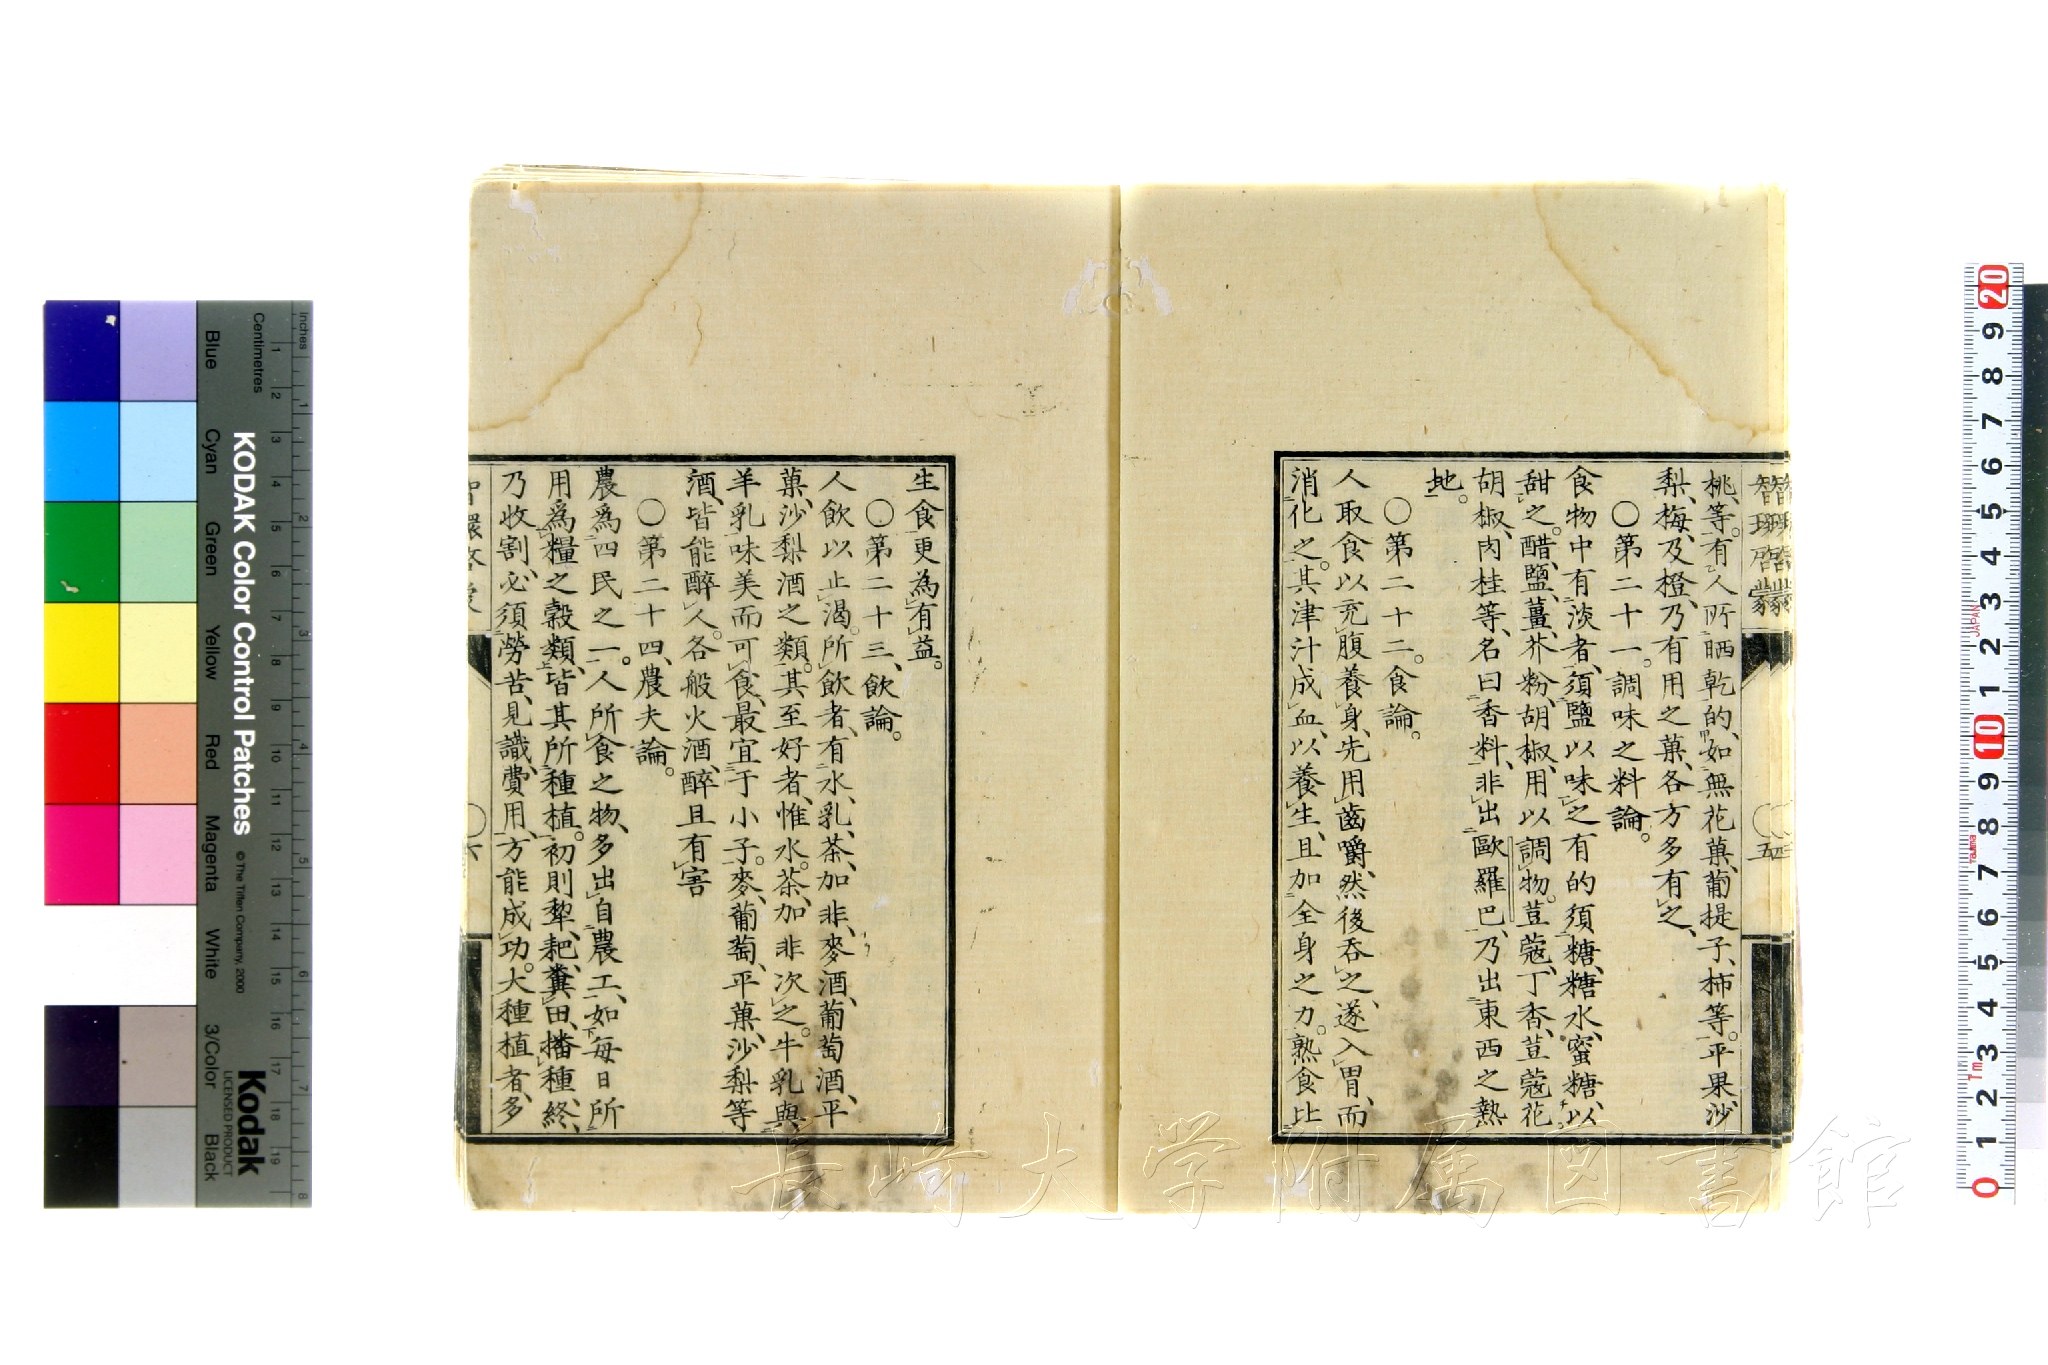 智環啓蒙
桃、等。有人所晒乾的、如無花菓、葡提子、柿等。平果、沙
梨、梅、及橙、乃有用之菓、各方多有之、
○第二十一。調味之料論。
食物中有淡者、須鹽以味之有的須糖、糖水、蜜糖、以
甜之。醋、鹽、薑、芥粉、胡椒、用以調物。荳蔻、丁香、荳蔻花、
胡椒、肉桂等、名曰香料、非出歐羅巴、乃出東西之熱
地。
○第二十二。食論。
人取食以充腹養身、先用齒嚼、然後吞之、遂入胃、而
消化之。其津汁成血、以養生、且加全身之力。熟食比
五
生食更為有益。
○第二十三、飲論。
人飲以止渴。所飲者、有水、乳、茶、加非、麥酒、葡萄酒、平
菓、沙梨酒之類。其至好者、惟水。茶、加非次之。牛乳與
羊乳味美而可食、最宜于小子。麥、葡萄、平菓、沙梨等
酒、皆能醉人。各般火酒、醉且有害
○第二十四、農夫論。
農爲四民之一。人所食之物、多出自農工、如每日所
用爲糧之穀類、皆其所種植。初則犂、耙、糞田、播種、終、
乃收割、必須勞苦、見識、費用、方能成功。大種植者、多
○六
KODAK Color Control Patches
© The Tiffen Company, 2000
Kodak
LICENSED PRODUCT
Inches
Centimetres
Blue
Cyan
Green
Yellow
Red
Magenta
White
3/Color
Black
1 2 3 4 5 6 7 8 9 10 11 12 13 14 15 16 17 18 19
1 2 3 4 5 6 7 8
20 9 8 7 6 5 4 3 2 1 10 9 8 7 6 5 4 3 2 1 0
JAPAN
Tajima
長崎大学附属図書館